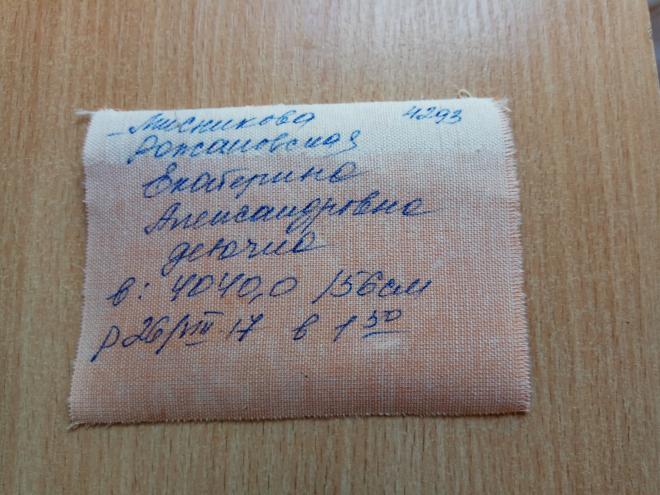 Мисникова 4293
Рожановская
Екатерина
Александровна
девочка
в: 4040,0 /56см
р 26/VIII 17 в 1 50